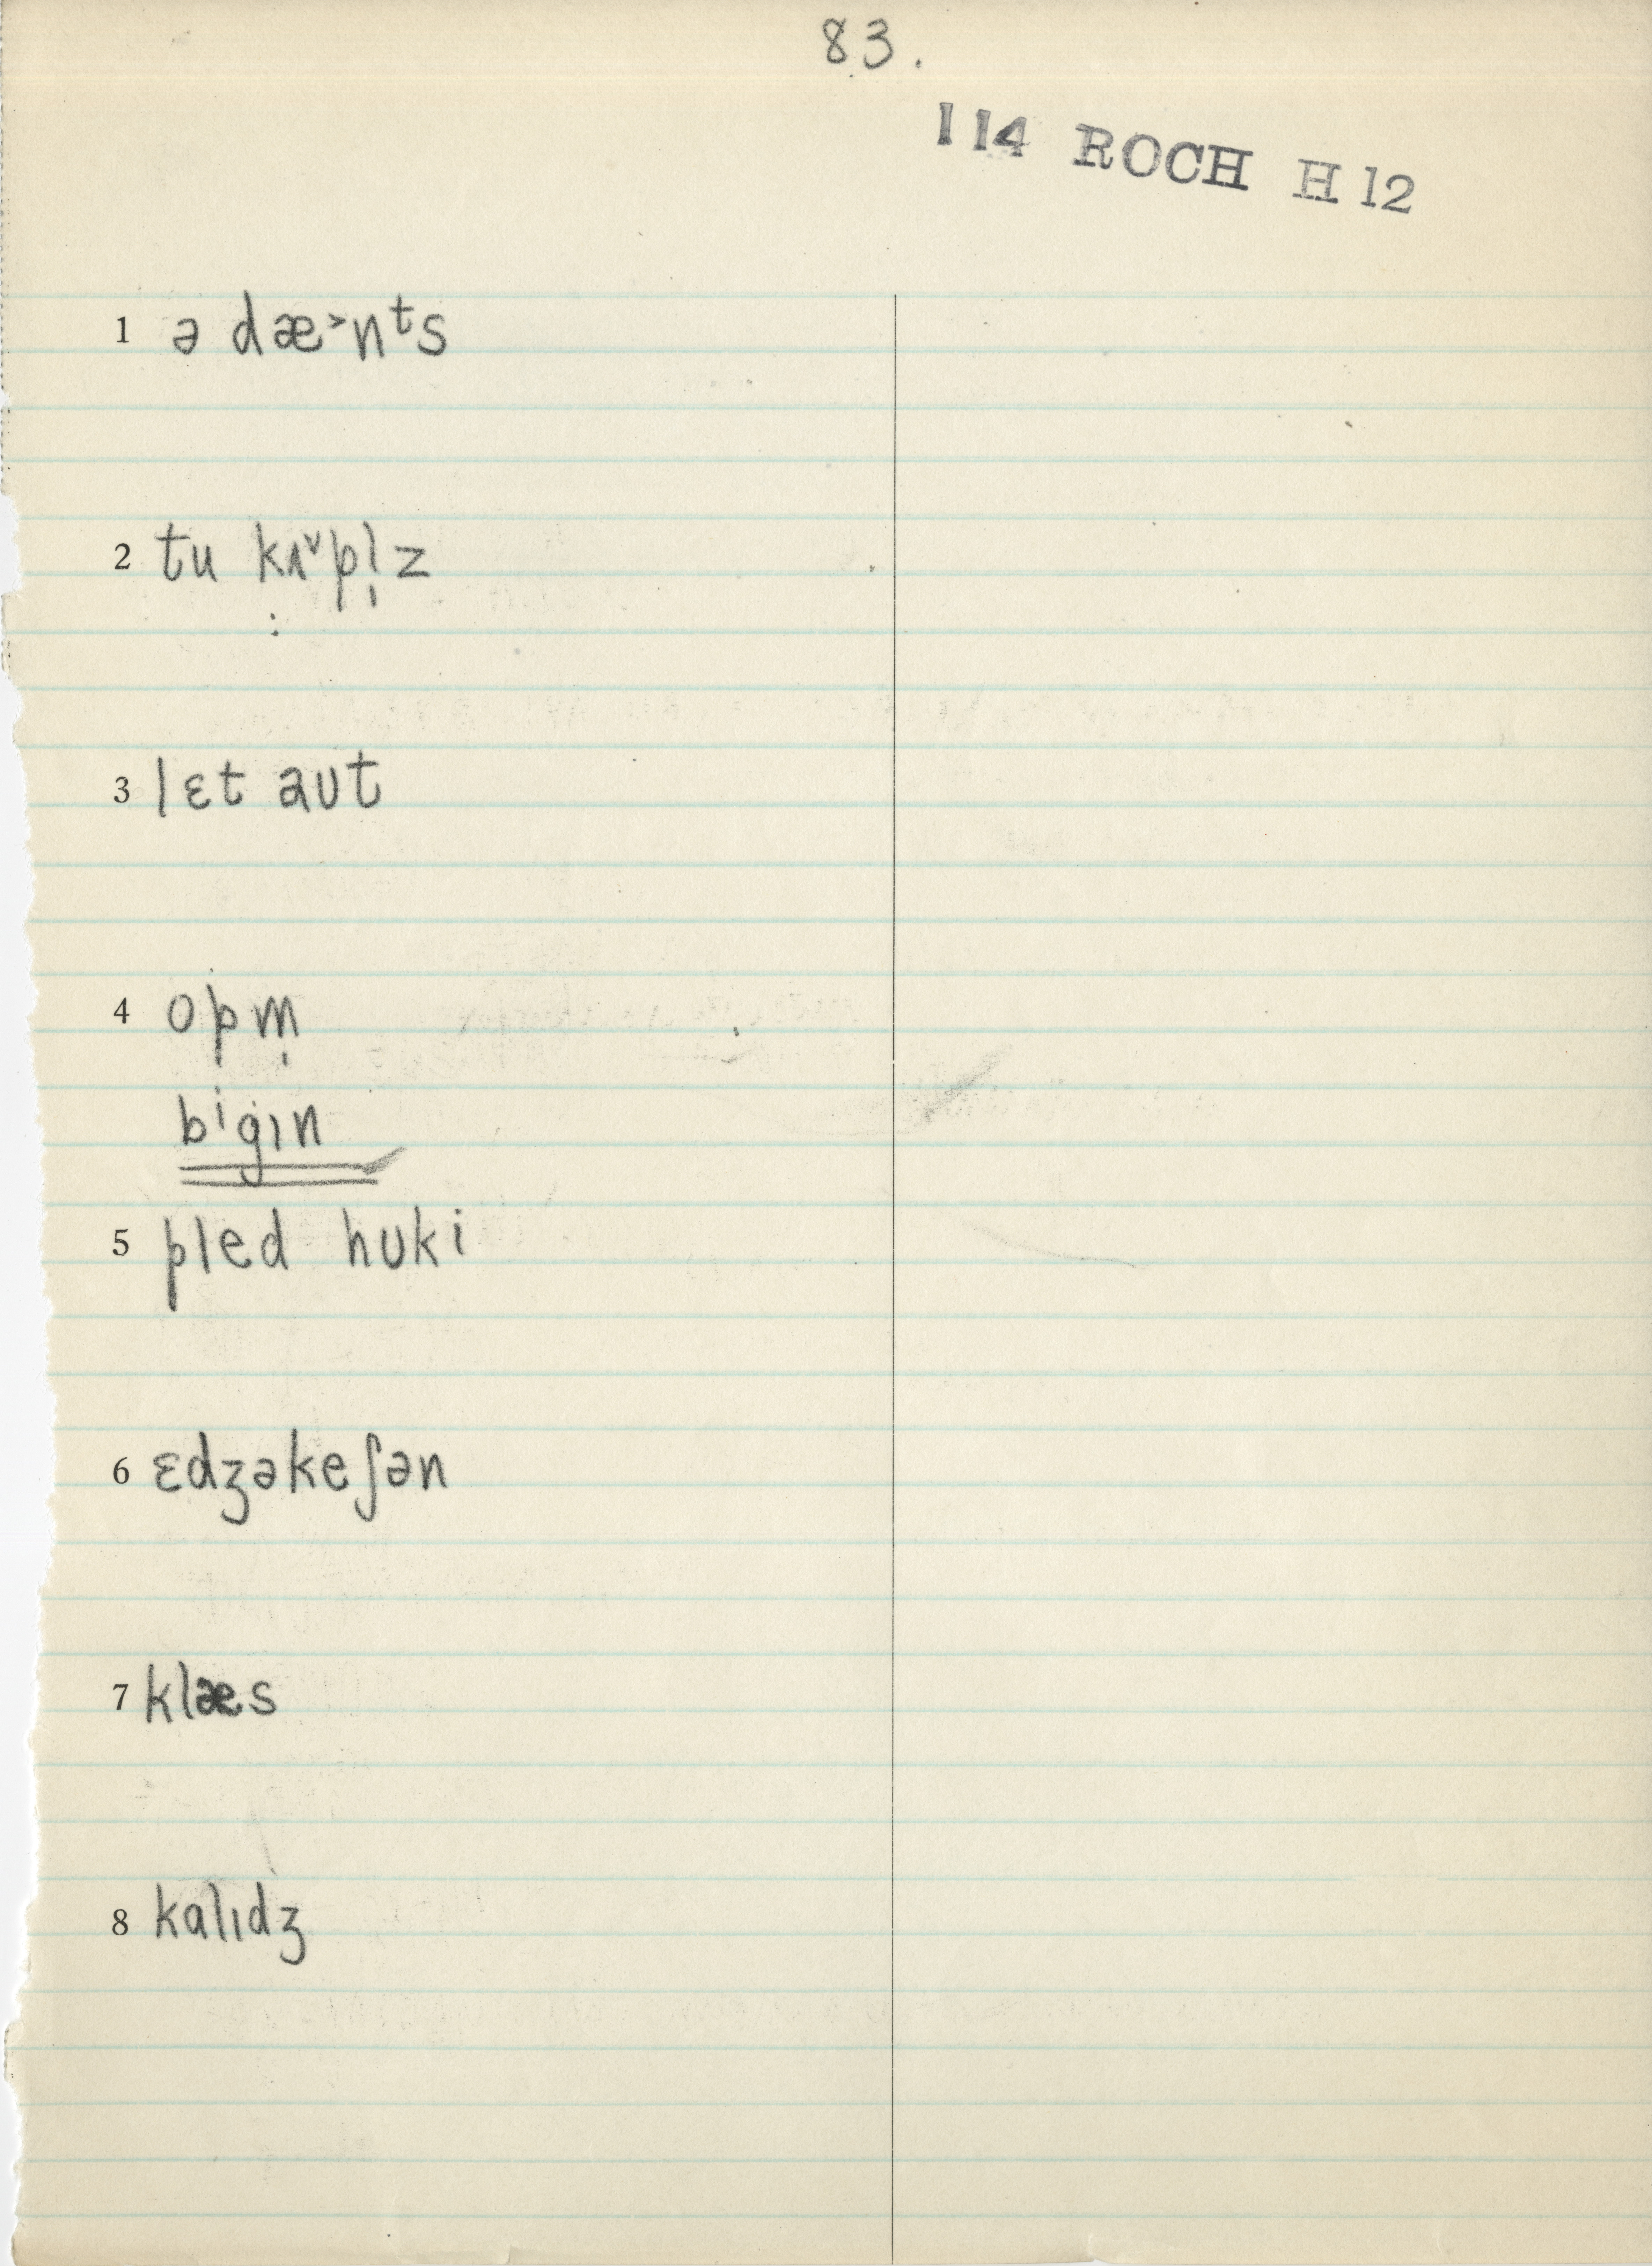 83.
114 ROCH H12
1 ə dæ˃nᵗs
2 tu kʌ˅pl̩z
3 lɛt aʊt
4 opm̩
bigɪn
5 pled hʊki
6 ɛdʒəkeʃən
7 klæs
8 kalɪdʒ